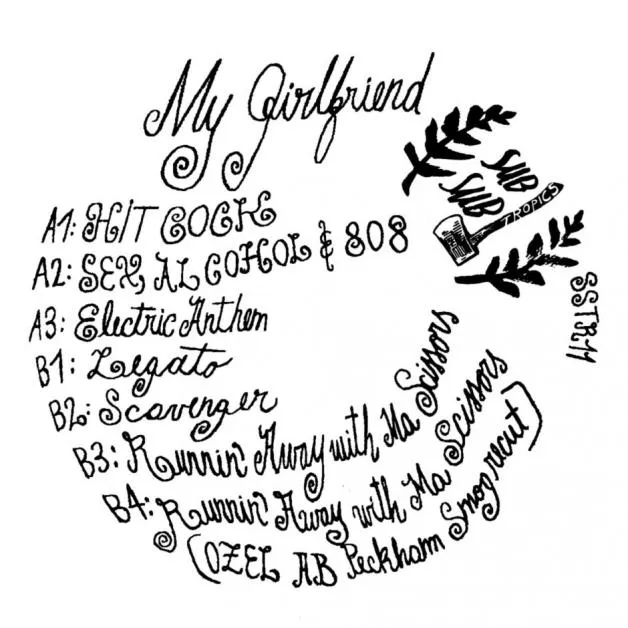 My Girlfriend
A1: HIT COCK
A2: SEX, ALCOHOL & 808
A3: Electric Anthem
B1: Legato
B2: Scavenger
B3: Runnin' Away with Ma Scissors
B4: Runnin' Away with Ma Scissors
(OZEL AB Peckham Smog recut)
SUB
SUB
TROPICS
SSTR-11